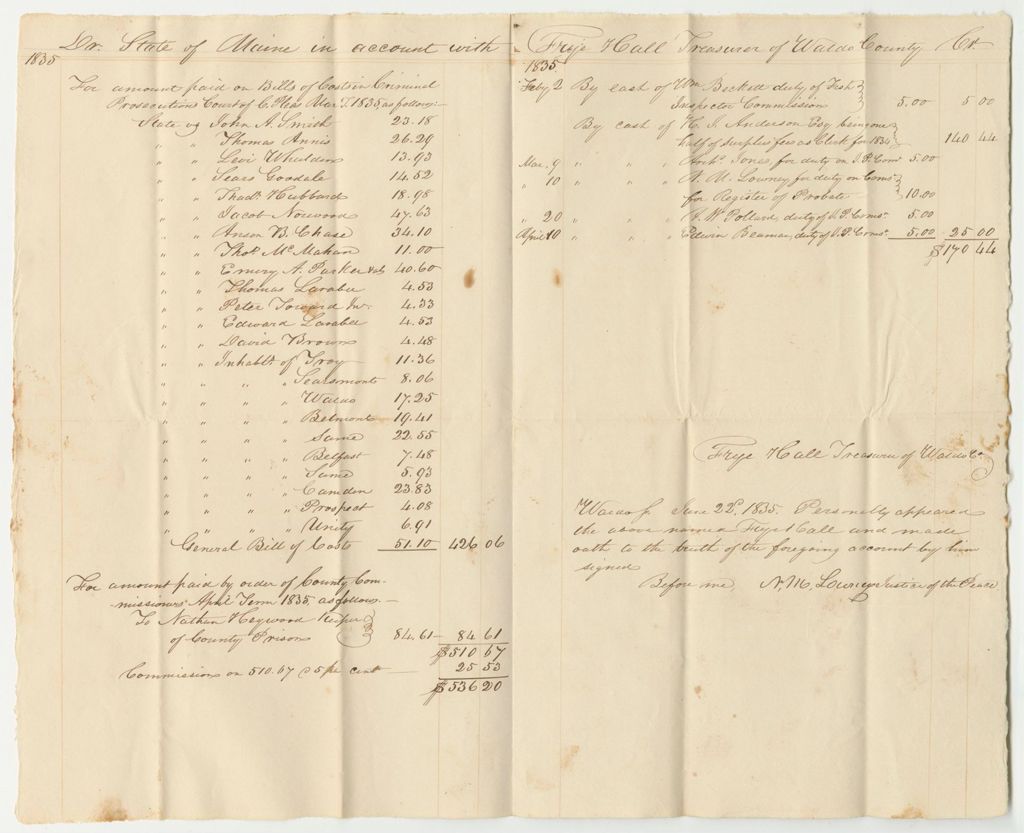 Dr. State of Maine in account with
1835
For amount paid on Bills of Costs in Criminal
Prosecutions Court of C. Pleas Mar. T. 1835 as follows:-
State vs John A. Smith 23.18
" " Thomas Annis 26.29
" " Levi Whidden 13.93
" " Sears Goodale 14.52
" " Thad. Hubbard 18.98
" " Jacob Norwood 47.63
" " Anson B. Chase 34.10
" " Thos. Mc Mahan 11.00
" " Emery A. Parker & al. 40.60
" " Thomas Larabee 4.53
" " Peter Toward Jnr. 4.33
" " Edward Larabee 4.53
" " David Brown 4.48
" " Inhabts. of Troy 11.36
" " " " Searsmont 8.06
" " " " Waldo 17.25
" " " " Belmont 19.41
" " " " Same 22.55
" " " " Belfast 7.48
" " " " Same 5.93
" " " " Camden 23.83
" " " " Prospect 4.08
" " " " Unity 6.91
General Bill of Costs 51.10 426 06
For amount paid by order of County Com-
missioners April Term 1835, as follows.-
To Nathan Heywood Keeper
of County Prison 84.61 - 84 61
$510 67
Commissions on 510.67 @ 5 per cent - 25 53
$536 20
Frye Hall Treasurer of Waldo County Cr.
1835
Feby 2 By cash of Wm Beckett duty of Fish
Inspector Commission 5.00 5 00
By cash of H. J. Anderson Esq being one
half of surplus fees as Clerk for 1834 140 44
Mar. 9 " " " Archd. Jones, for duty on J.P. Coms. 5.00
" 10 " " " N. M. Lowney for duty on Coms.
for Register of Probate 10.00
" 20 " " " Pollard, duty of J.P. Coms. 5.00
April 10 " " " Edwin Beaman, duty of J.P. Coms. 5.00 25 00
$170 44
Frye Hall Treasurer of Waldo Co.
Waldo ss June 22d. 1835. Personally appeared
the above named Frye Hall and made
oath to the truth of the foregoing account by him
signed
Before me N. M. Lowney Justice of the Peace